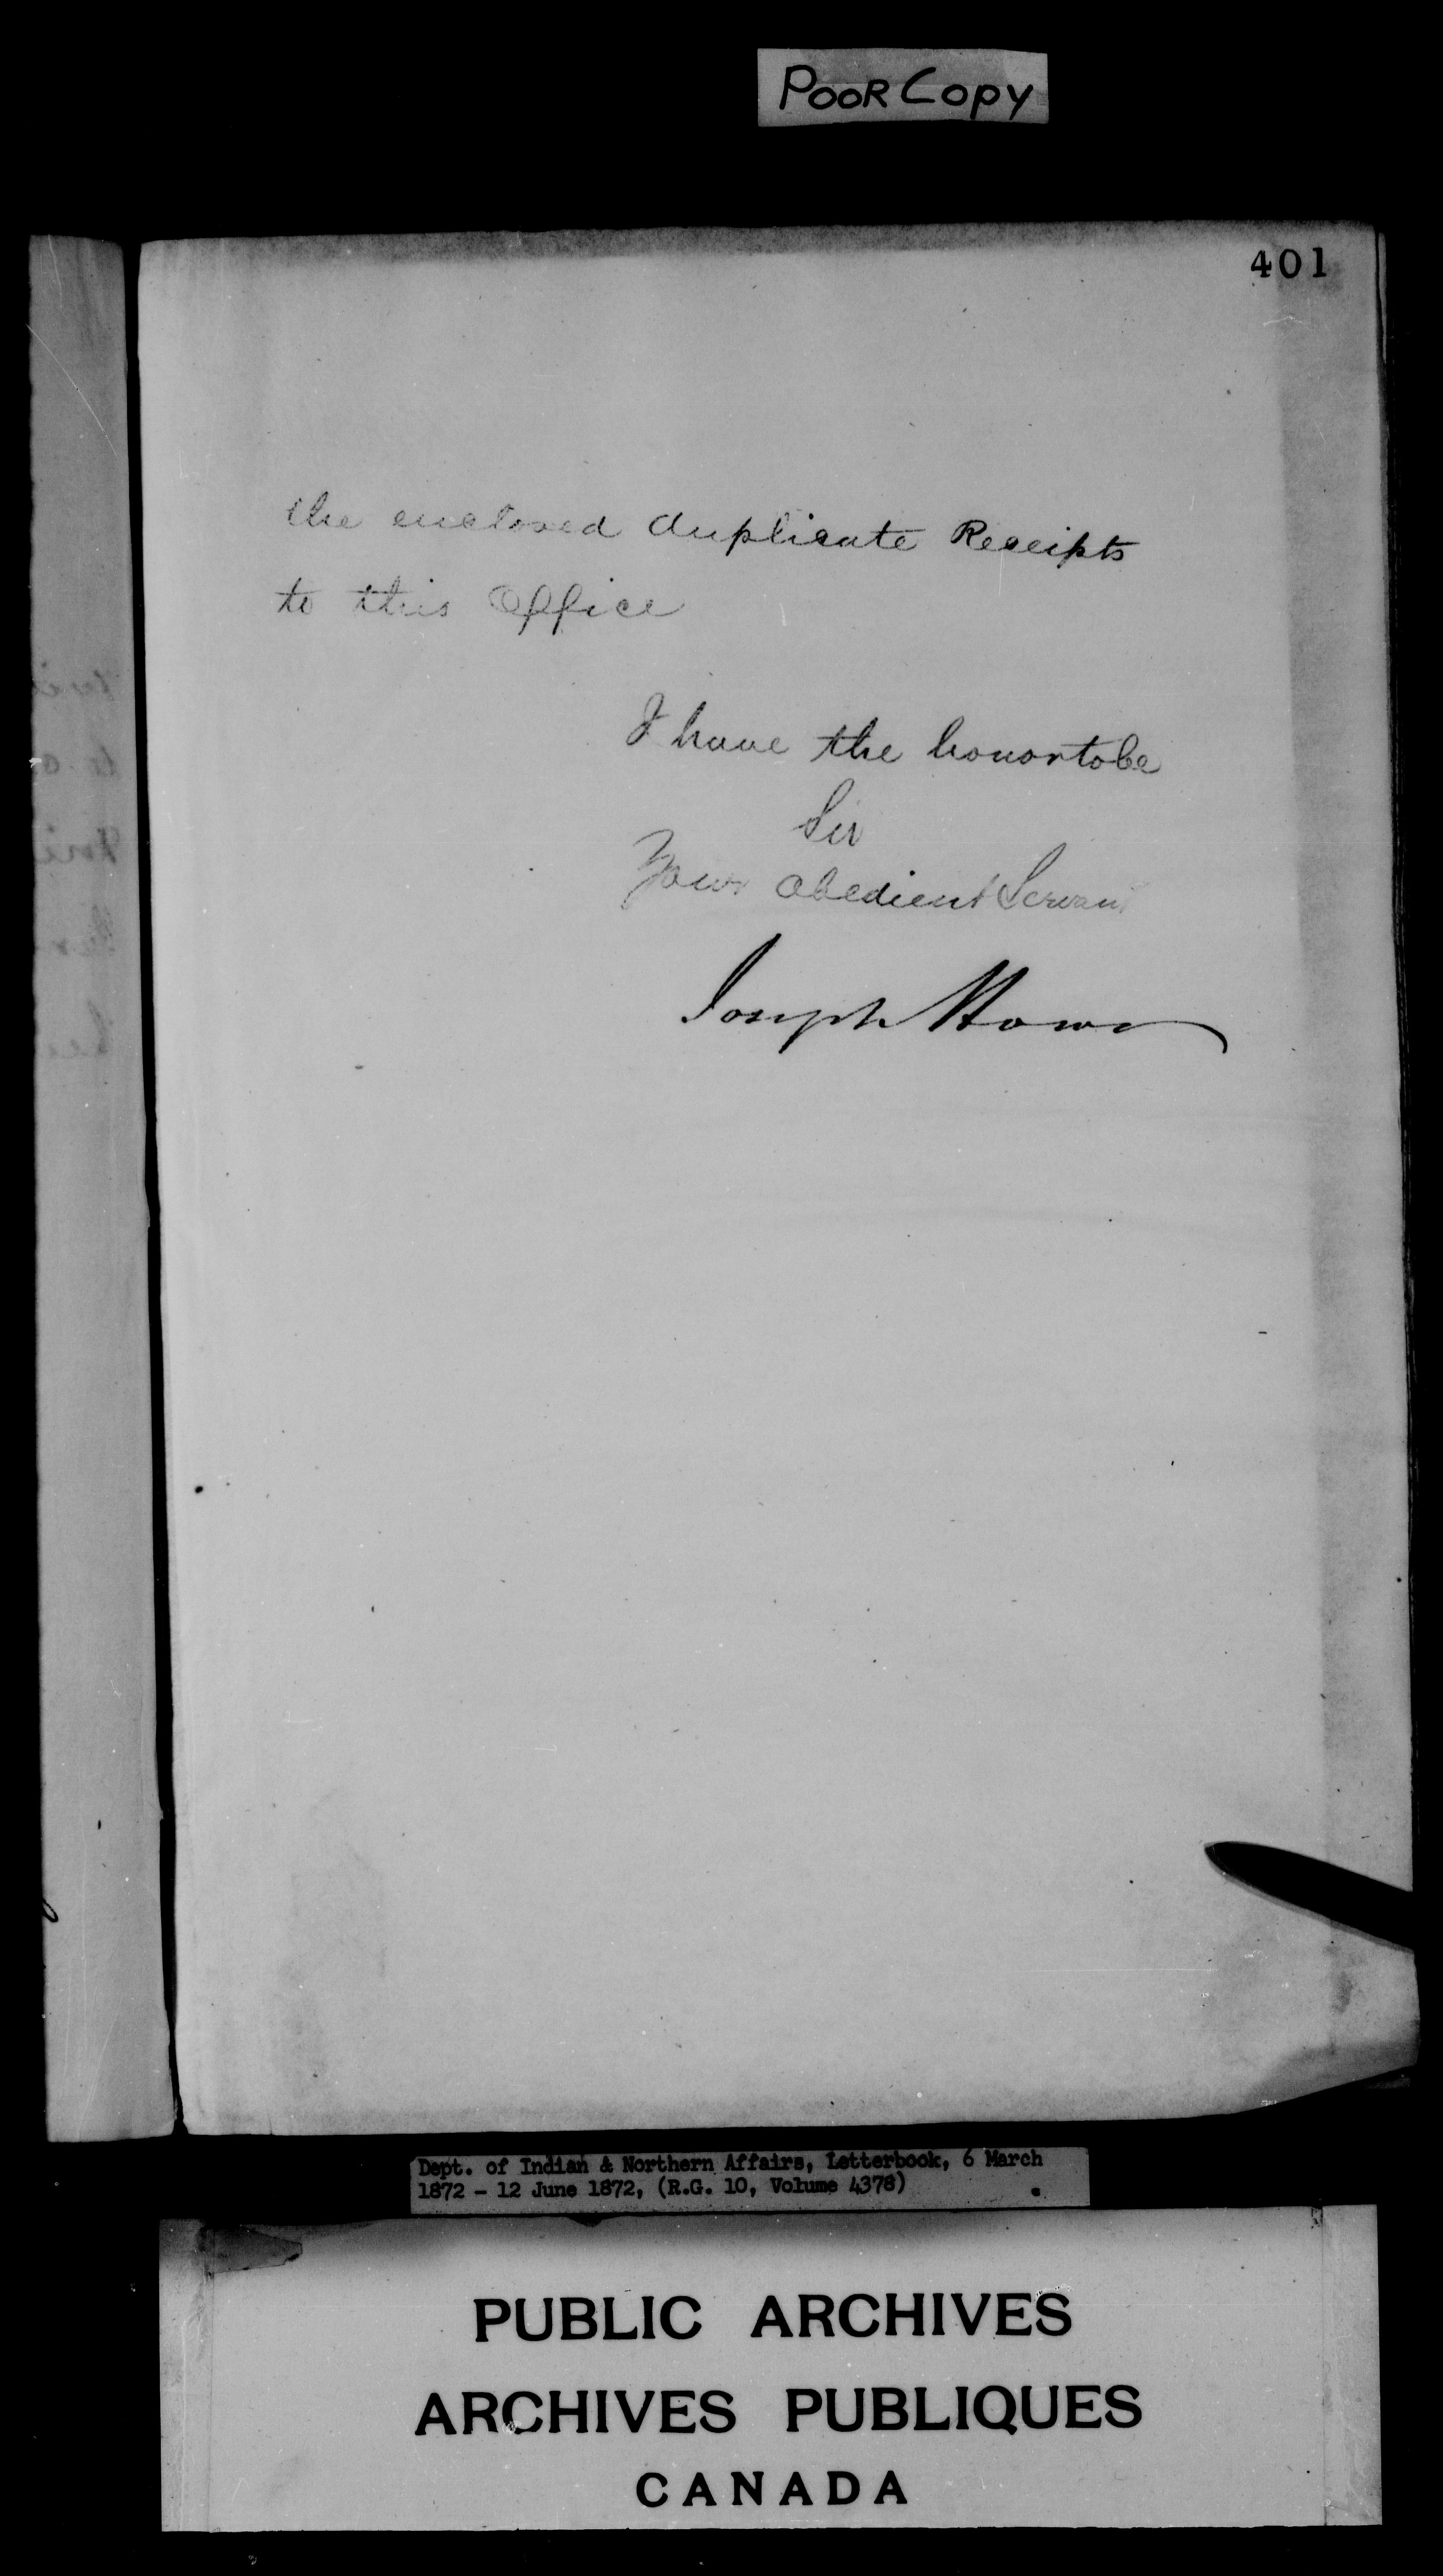 POOR COPY
401
the enclosed duplicate Receipts
to this Office
I have the honor to be
Sir
Your Obedient Servant
Joseph Howe
Dept. of Indian & Northern Affairs, Letterbook, 6 March
1872 - 12 June 1872, (R.G. 10, Volume 4378)
PUBLIC ARCHIVES
ARCHIVES PUBLIQUES
CANADA